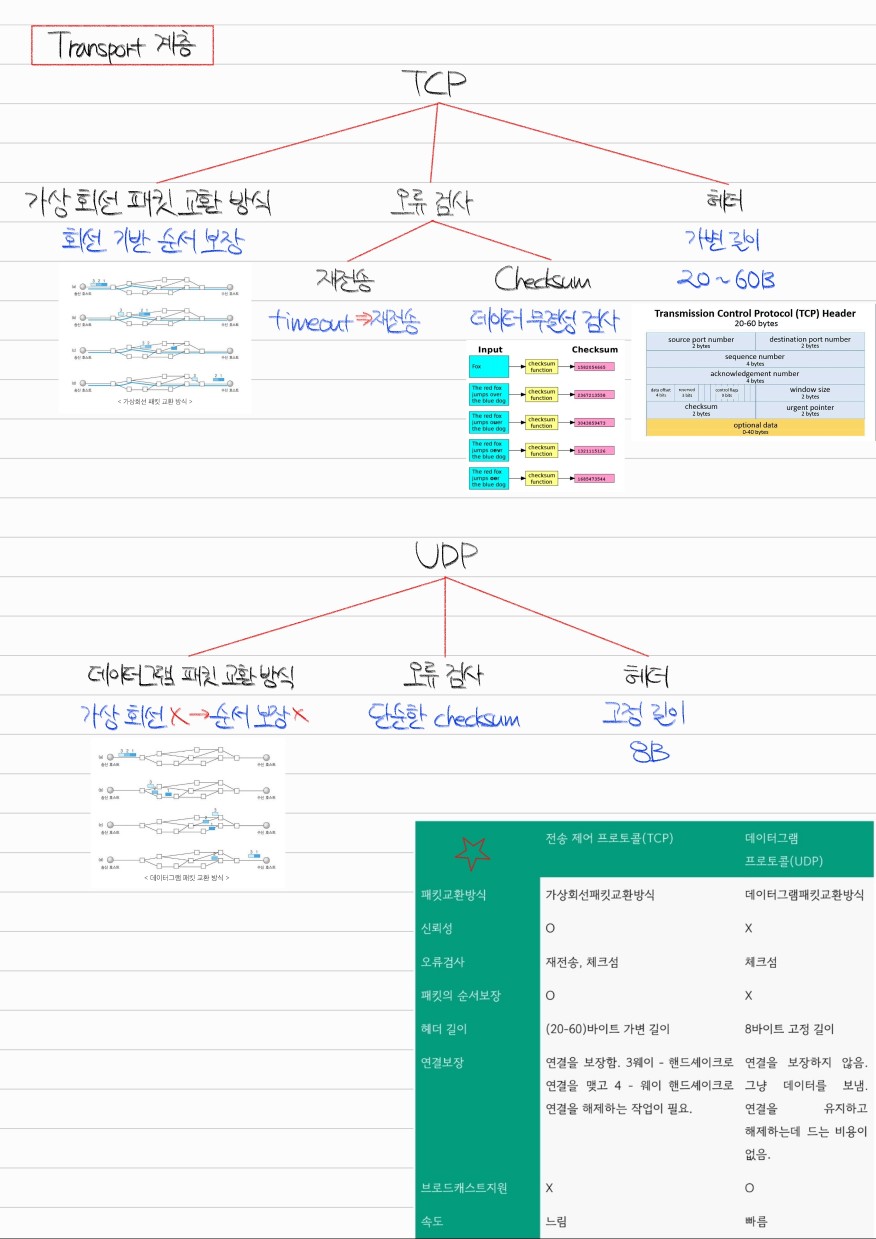 Transport 계층
TCP
가상 회선 패킷 교환 방식
회선 기반 순서 보장
< 가상회선 패킷 교환 방식 >
오류 검사
재전송
timeout ⇒ 재전송
Checksum
데이터 무결성 검사
Input Checksum
Fox checksum function 1582054665
The red fox jumps over the blue dog checksum function 2367213558
The red fox jumps ouer the blue dog checksum function 3043859473
The red fox jumps oevr the blue dog checksum function 1321115126
The red fox jumps oer the blue dog checksum function 1685473544
헤더
가변 길이
20 ~ 60B
Transmission Control Protocol (TCP) Header
20-60 bytes
source port number
2 bytes
destination port number
2 bytes
sequence number
4 bytes
acknowledgement number
4 bytes
data offset
4 bits
reserved
3 bits
control flags
9 bits
window size
2 bytes
checksum
2 bytes
urgent pointer
2 bytes
optional data
0-40 bytes
UDP
데이터그램 패킷 교환 방식
가상 회선 X → 순서 보장 X
< 데이터그램 패킷 교환 방식 >
오류 검사
단순한 checksum
헤더
고정 길이
8B
전송 제어 프로토콜(TCP)
데이터그램
프로토콜(UDP)
패킷교환방식 가상회선패킷교환방식 데이터그램패킷교환방식
신뢰성 O X
오류검사 재전송, 체크섬 체크섬
패킷의 순서보장 O X
헤더 길이 (20-60)바이트 가변 길이 8바이트 고정 길이
연결보장 연결을 보장함. 3웨이 - 핸드셰이크로 연결을 보장하지 않음.
연결을 맺고 4 - 웨이 핸드셰이크로 그냥 데이터를 보냄.
연결을 해제하는 작업이 필요. 연결을 유지하고
해제하는데 드는 비용이
없음.
브로드캐스트지원 X O
속도 느림 빠름